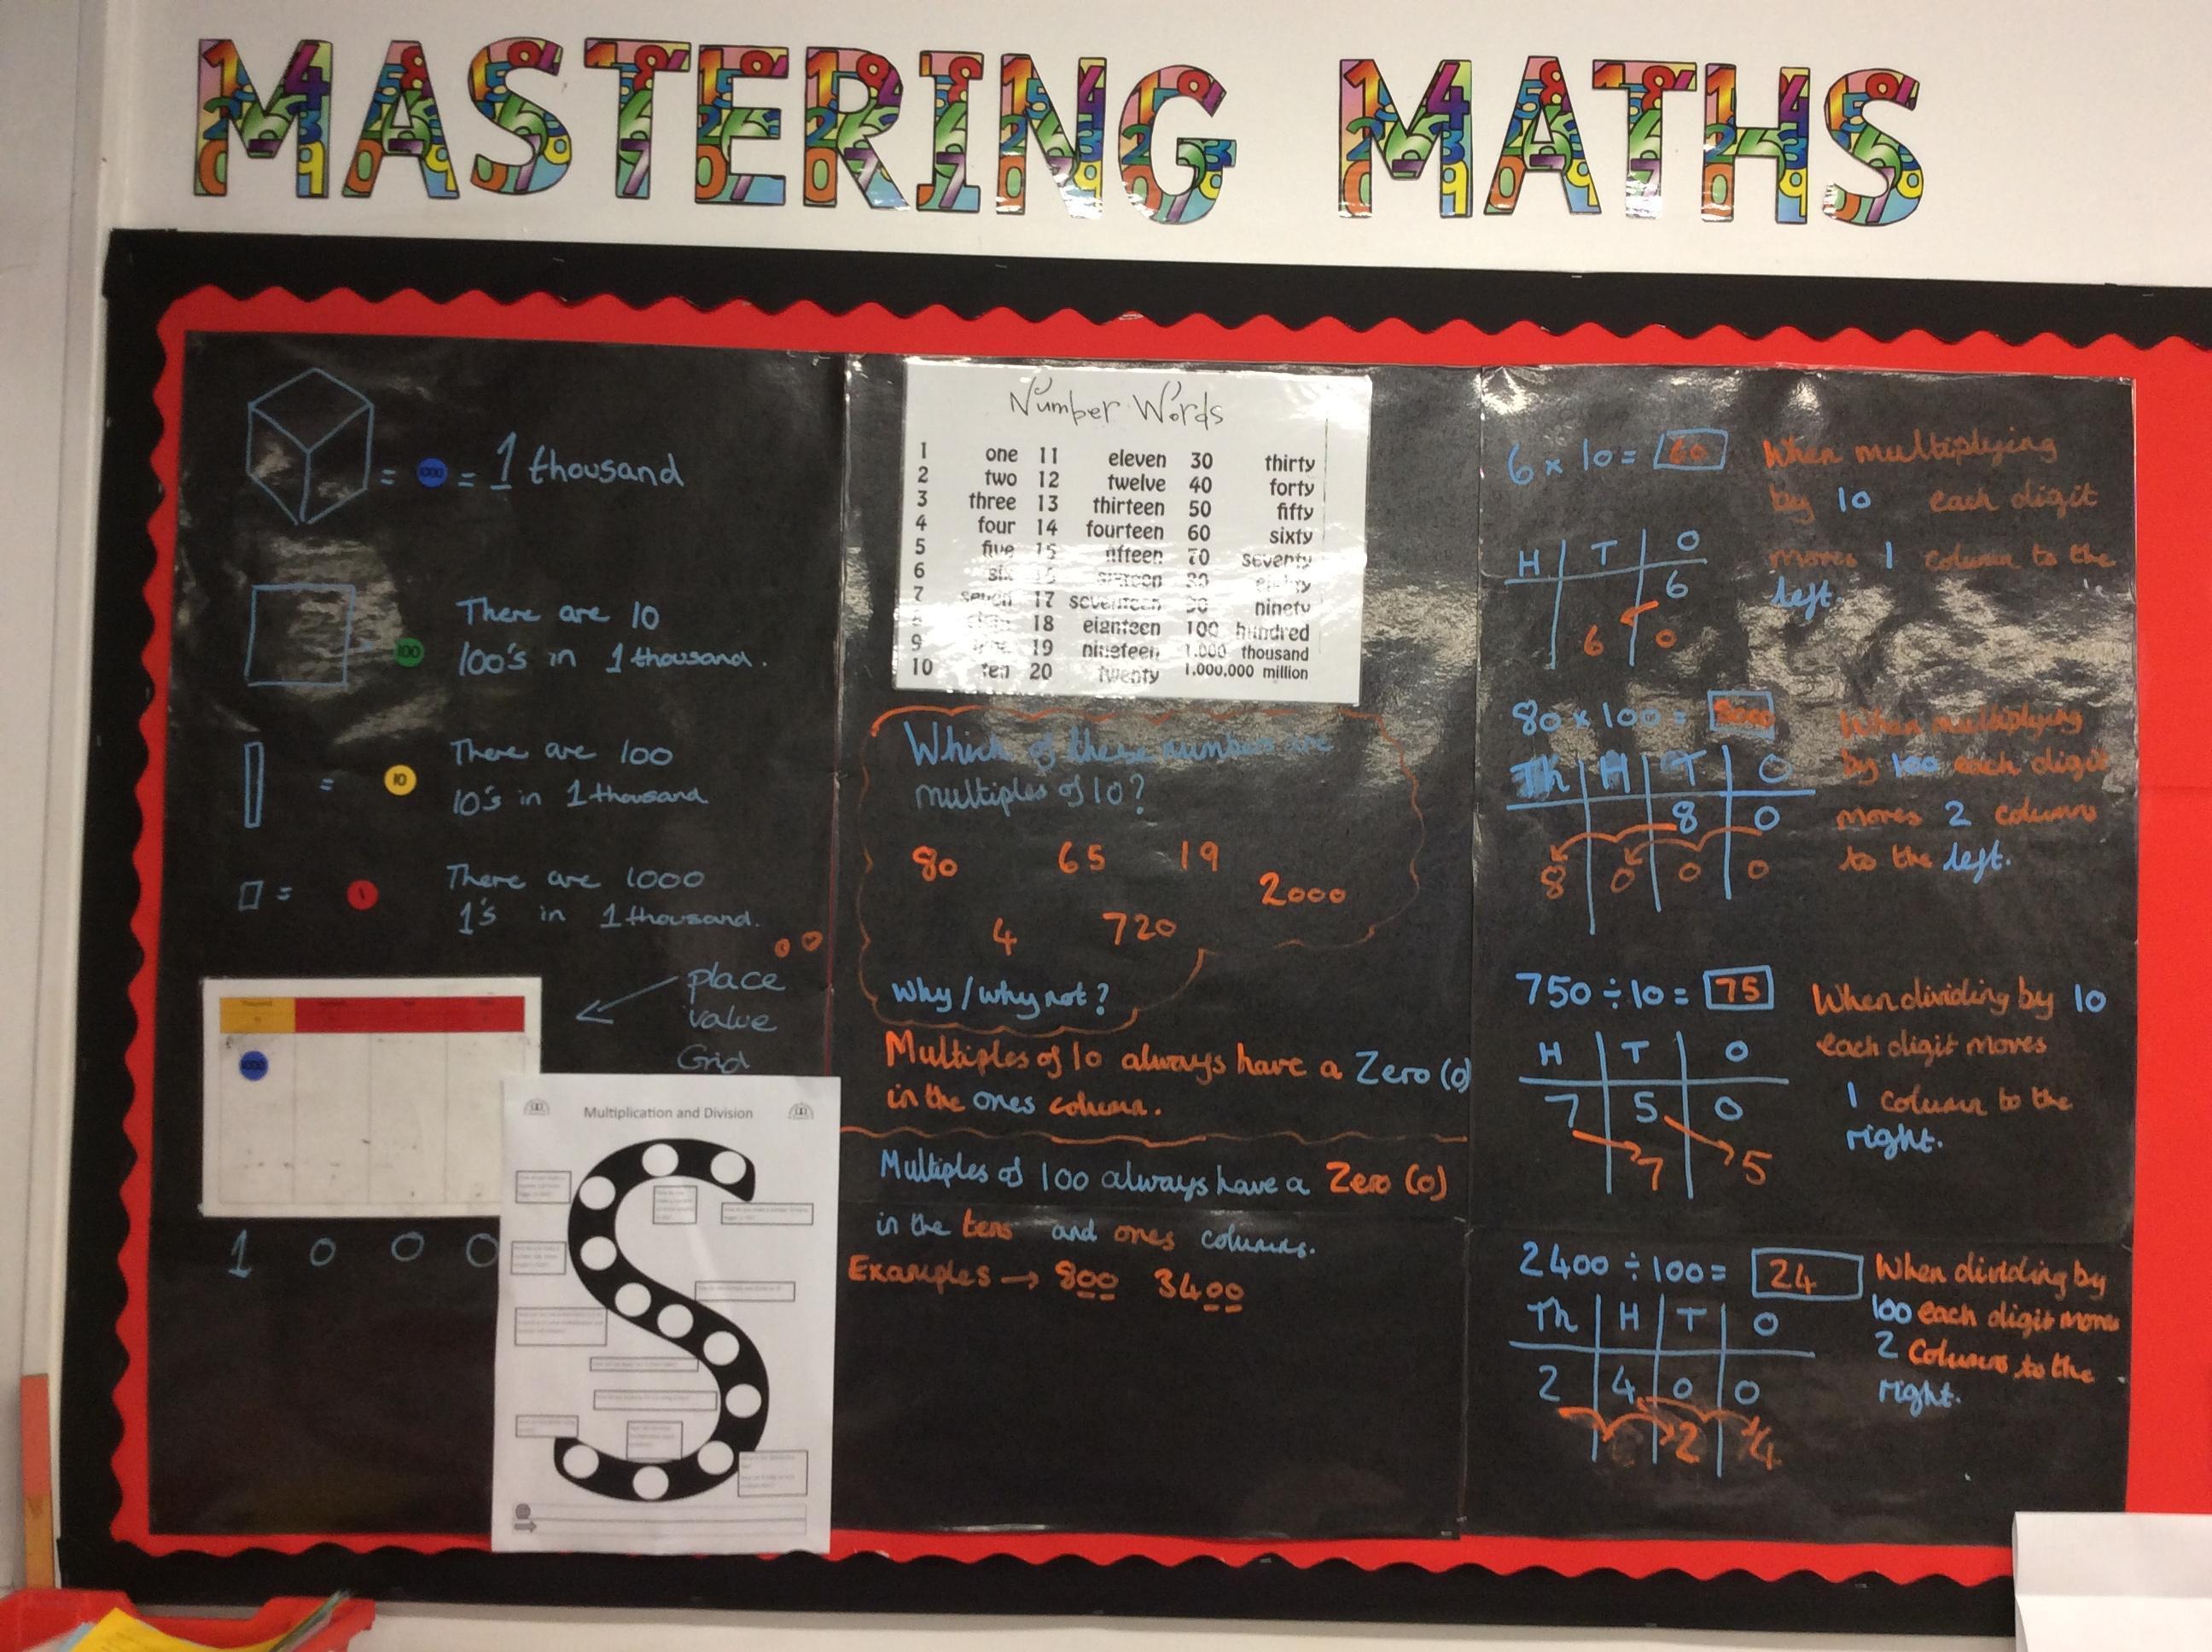 MASTERING MATHS
= 1000 = 1 thousand
There are 10
100's in 1 thousand.
100
There are 100
10's in 1 thousand
= 10
There are 1000
1's in 1 thousand.
= 1
place
value
Grid
1000
1 0 0 0
Multiplication and Division
Number Words
1 one 11 eleven 30 thirty
2 two 12 twelve 40 forty
3 three 13 thirteen 50 fifty
4 four 14 fourteen 60 sixty
5 five 15 fifteen 70 seventy
6 six sixteen eighty
7 seven 17 seventeen 90 ninety
18 eighteen 100 hundred
9 19 nineteen 1.000 thousand
10 ten 20 twenty 1.000.000 million
Which of these numbers are
multiples of 10?
80 65 19
2000
4 720
Why / why not?
Multiples of 10 always have a Zero (0)
in the ones column.
Multiples of 100 always have a Zero (0)
in the tens and ones columns.
Examples → 800 3400
6 x 10 = 60
When multiplying
by 10 each digit
moves 1 column to the
left.
H T O
6
6 0
80 x 100 = 8000
When multiplying
by 100 each digit
moves 2 columns
to the left.
Th H T O
8 0
8 0 0 0
750 ÷ 10 = 75
When dividing by 10
each digit moves
1 column to the
right.
H T O
7 5 0
7 5
2400 ÷ 100 = 24
When dividing by
100 each digit moves
2 columns to the
right.
Th H T O
2 4 0 0
2 4